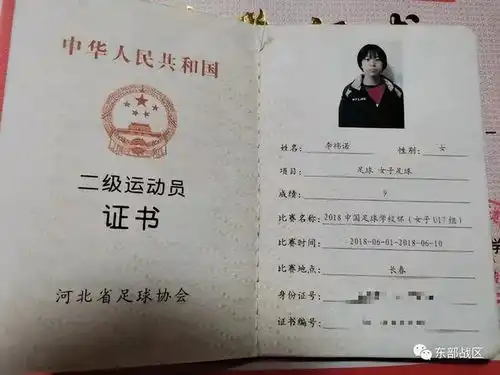 中华人民共和国
二级运动员
证书
河北省足球协会
姓名： 李祎诺 性别： 女
项目： 足球 女子足球
成绩： 9
比赛名称： 2018中国足球学校杯（女子U17组）
比赛时间： 2018-06-01-2018-06-10
比赛地点： 长春
身份证号：
证书编号：
东部战区